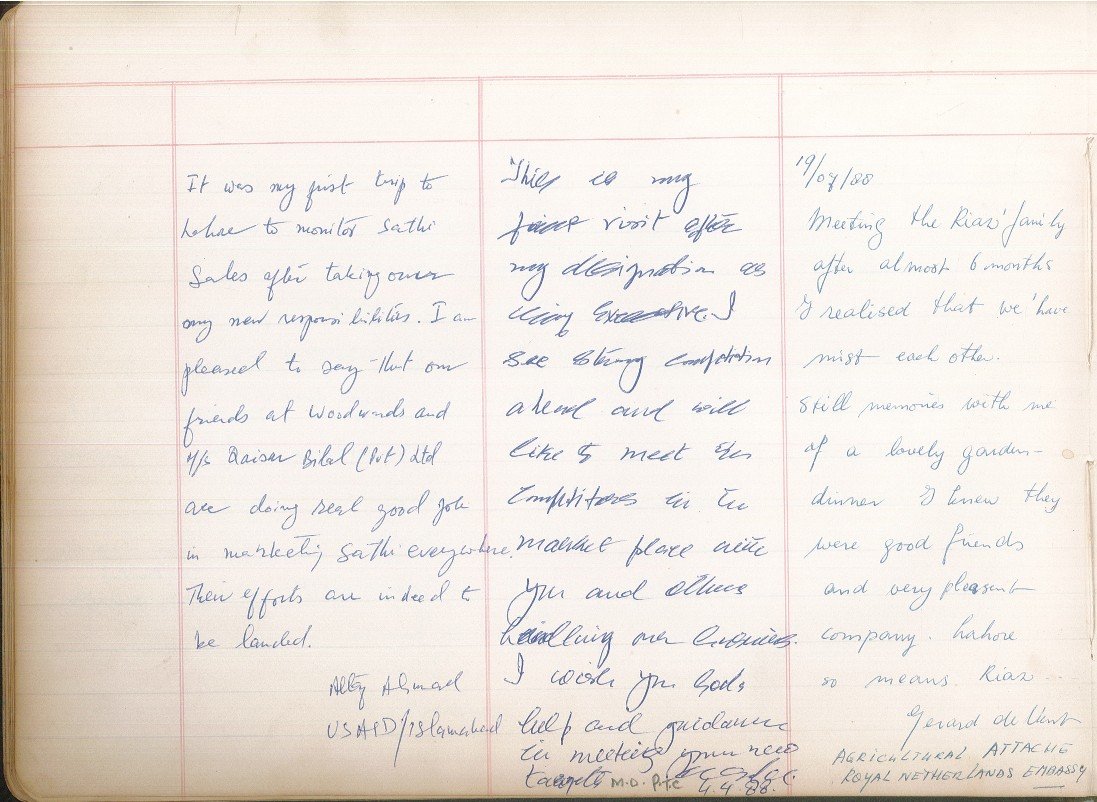 It was my first trip to
Lahore to monitor Sathi
Sales after taking over
my new responsibilities. I am
pleased to say that our
friends at Woodwards and
M/s Qaiser Bilal (Pvt) Ltd
are doing real good job
in marketing Sathi everywhere.
Their efforts are indeed to
be lauded.
Ahmad
USAID/Islamabad
This is my
first visit after
my designation as
I
see strong competition
ahead and will
like to meet the
competitors in the
market place with
you and others
handling our business.
I wish you Gods
help and guidance
in meeting your new
targets M.D. P.T.C
4.4.88.
19/07/88
Meeting the Riaz' family
after almost 6 months
I realised that we 'have
mist each other.
Still memories with me
of a lovely garden-
dinner I knew they
were good friends
and very pleasent
company. Lahore
so means Riaz...
Gerard de
AGRICULTURAL ATTACHE
ROYAL NETHERLANDS EMBASSY